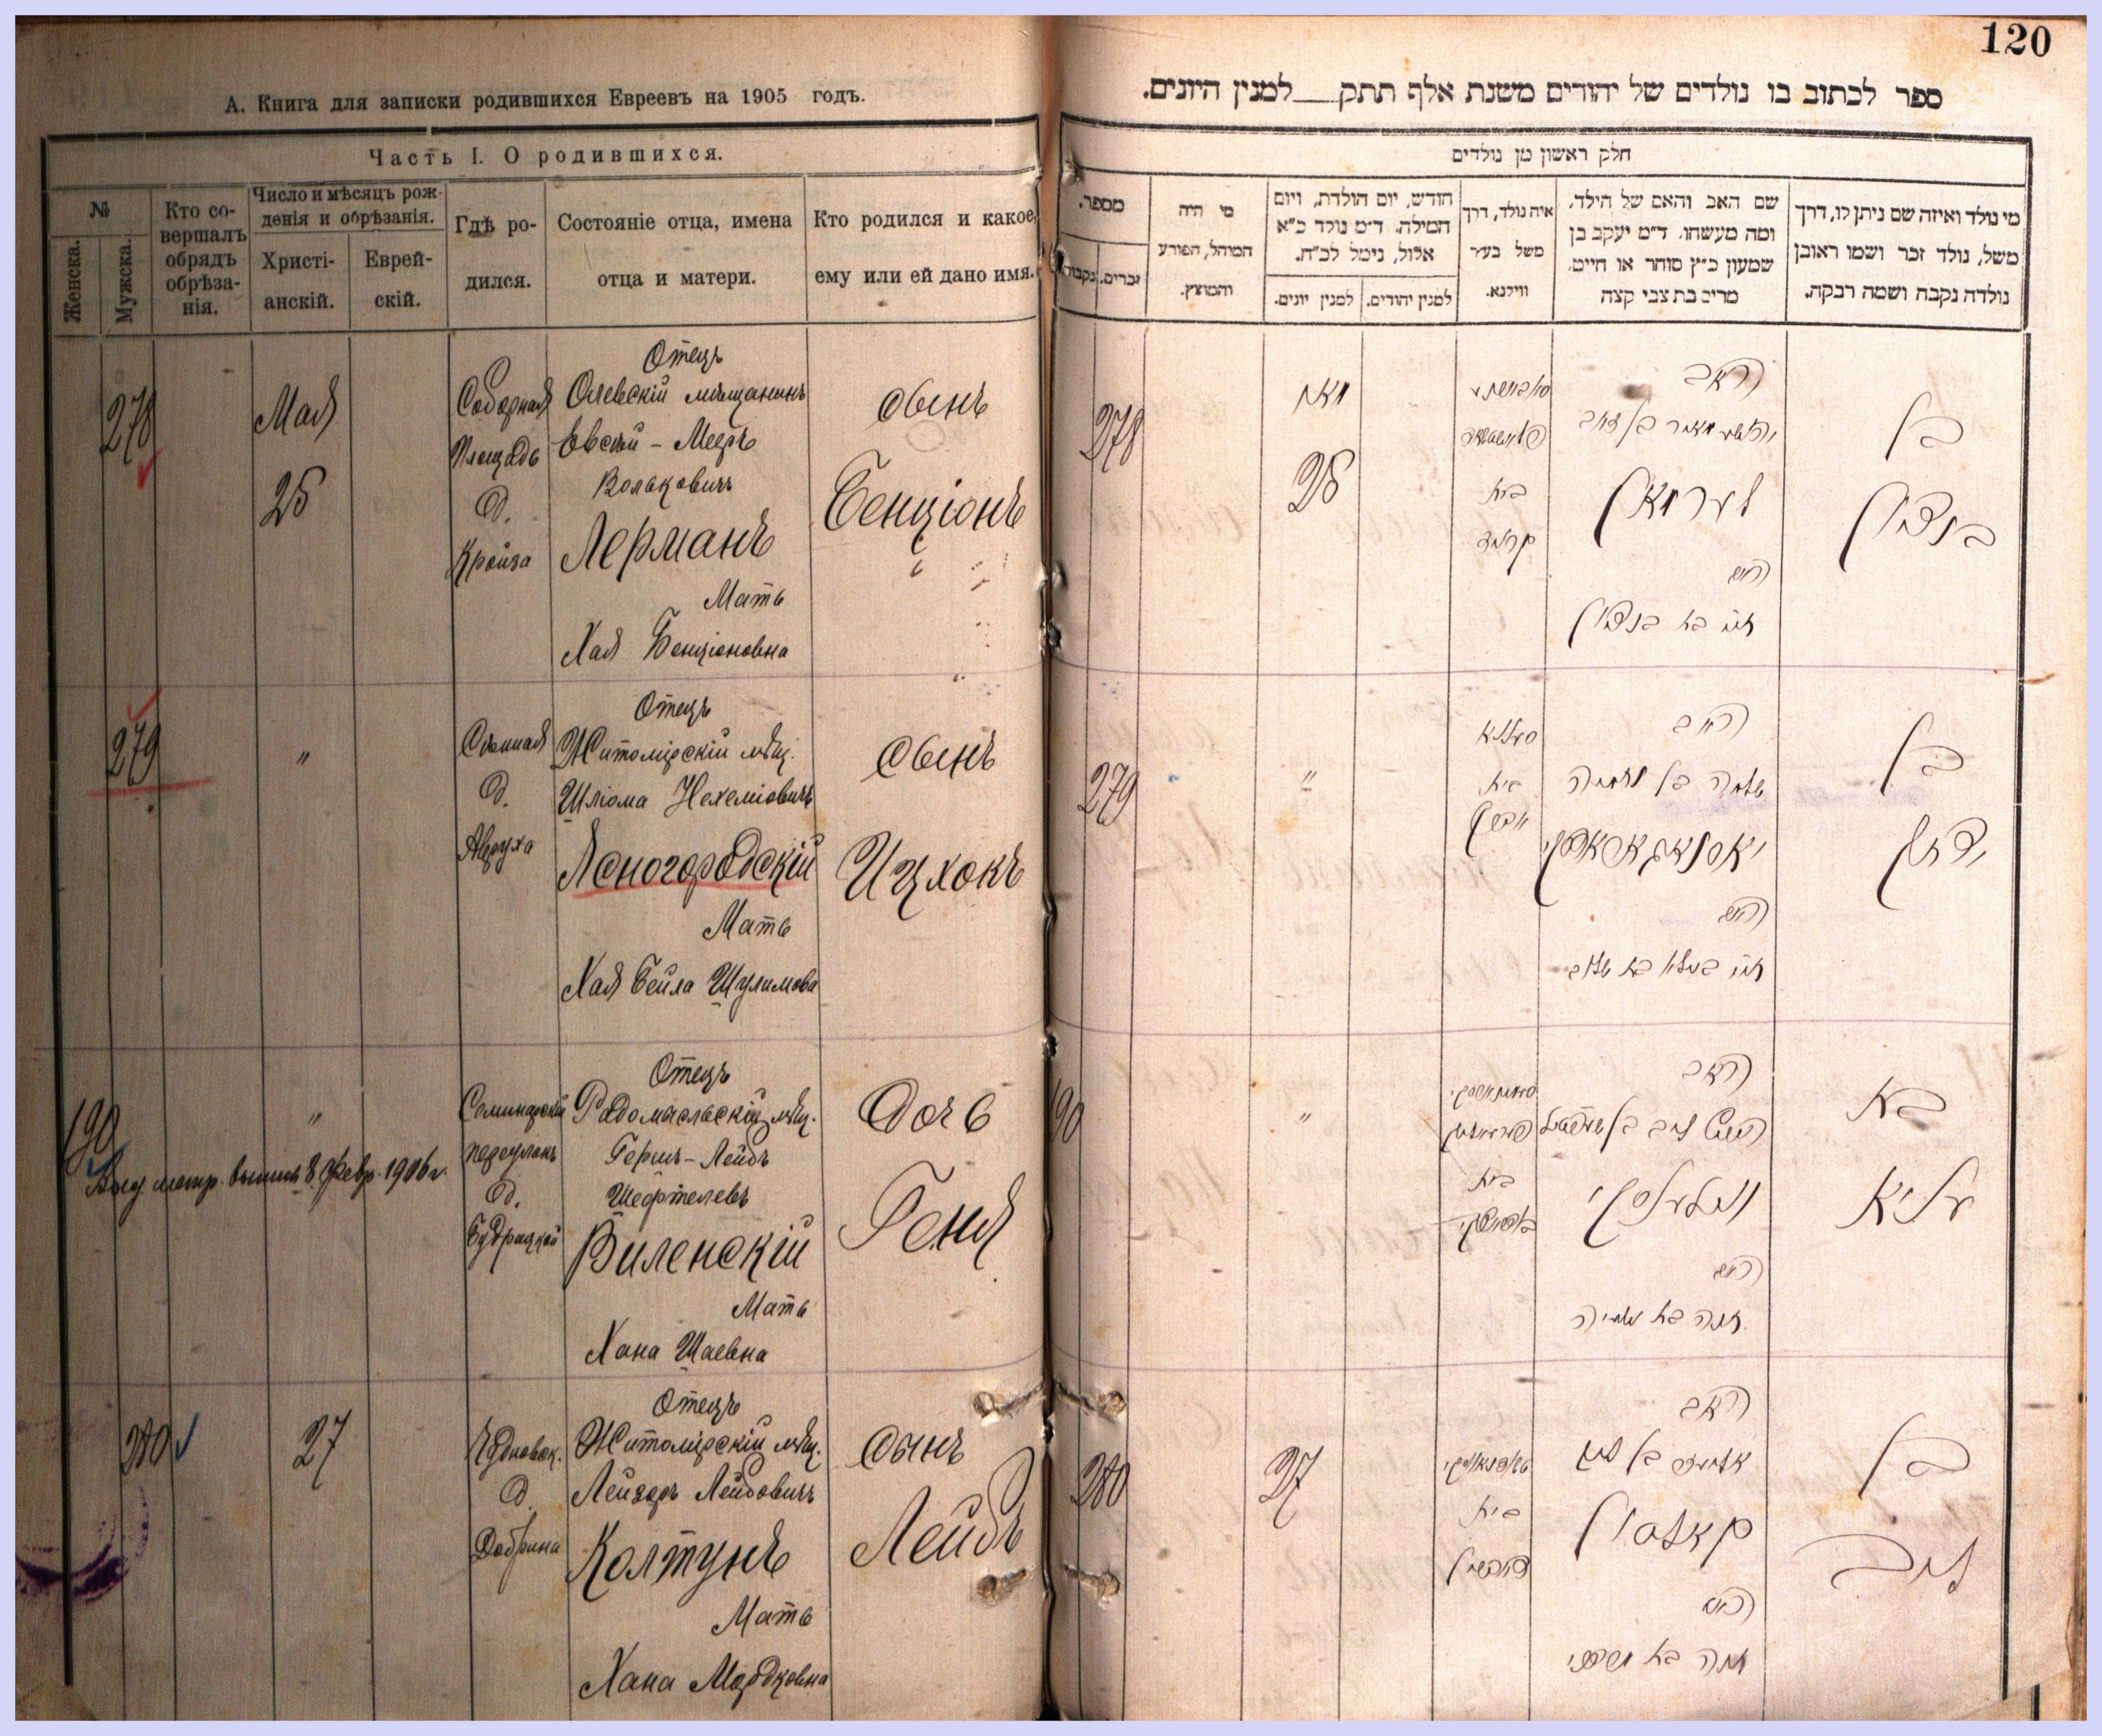 120
А. Книга для записки родившихся Евреевъ на 1905 годъ.
Часть I. О родившихся.
№
Женска.
Мужска.
Кто со-
вершалъ
обрядъ
обрѣза-
нія.
Число и мѣсяцъ рож-
денія и обрѣзанія.
Христі-
анскій.
Еврей-
скій.
Гдѣ ро-
дился.
Состояніе отца, имена
отца и матери.
Кто родился и какое
ему или ей дано имя.
278
Мая
25
Соборная
Площадь
д.
Кройза
Отецъ
Олевскій мѣщанинъ
Евсей - Мееръ
Вольковичъ
Лерманъ
Мать
Хая Бенціоновна
сынъ
Бенціонъ
279
"
Сѣнная
д.
Отецъ
Житомірскій мѣщ.
Шліома Нехеміовичъ
Ясногородскій
Мать
Хая Бейла Шулимова
сынъ
Ицхокъ
190
"
1906 г.
Семинарскій
переулокъ
д.
Отецъ
Радомысльскій мѣщ.
Гершъ-Лейбъ
Шефтелевъ
Виленскій
Мать
Хана Шаевна
дочь
Геня
280
27
Чудновск.
д.
Добрина
Отецъ
Житомірскій мѣщ.
Лейзеръ Лейбовичъ
Колтунъ
Мать
Хана Мордковна
сынъ
Лейбъ
ספר לכתוב בו נולדים של יהודים משנת אלף תתק למנין היונים.
חלק ראשון מן נולדים
מי נולד ואיזה שם ניתן לו, דרך
משל, נולד זכר ושמו ראובן
נולדה נקבה ושמה רבקה.
שם האב והאם של הילד,
ומה מעשהו. ד״מ יעקב בן
שמעון כ״ץ סוחר או חייט.
מרים בת צבי קצה
איה נולד, דרך
משל בעיר
ווילנא.
חודש, יום הולדת, ויום
המילה. ד״מ נולד כ״א
אלול, נימל לכ״ח.
למנין יהודים.
למנין יונים.
מי היה
המוהל, הפורע
והמוצץ.
מספר.
זכרים.
נקבות
278
מאי
25
בית
האב
לערמאן
האם
חי׳ בת בנציון
בן
בנציון
279
"
בית
האב
שלמה בן נחמיה
האם
בן
יצחק
190
"
בית
האב
ווילענסקי
האם
בת
געניא
280
27
בית
האב
קאלטון
האם
בן
לייב